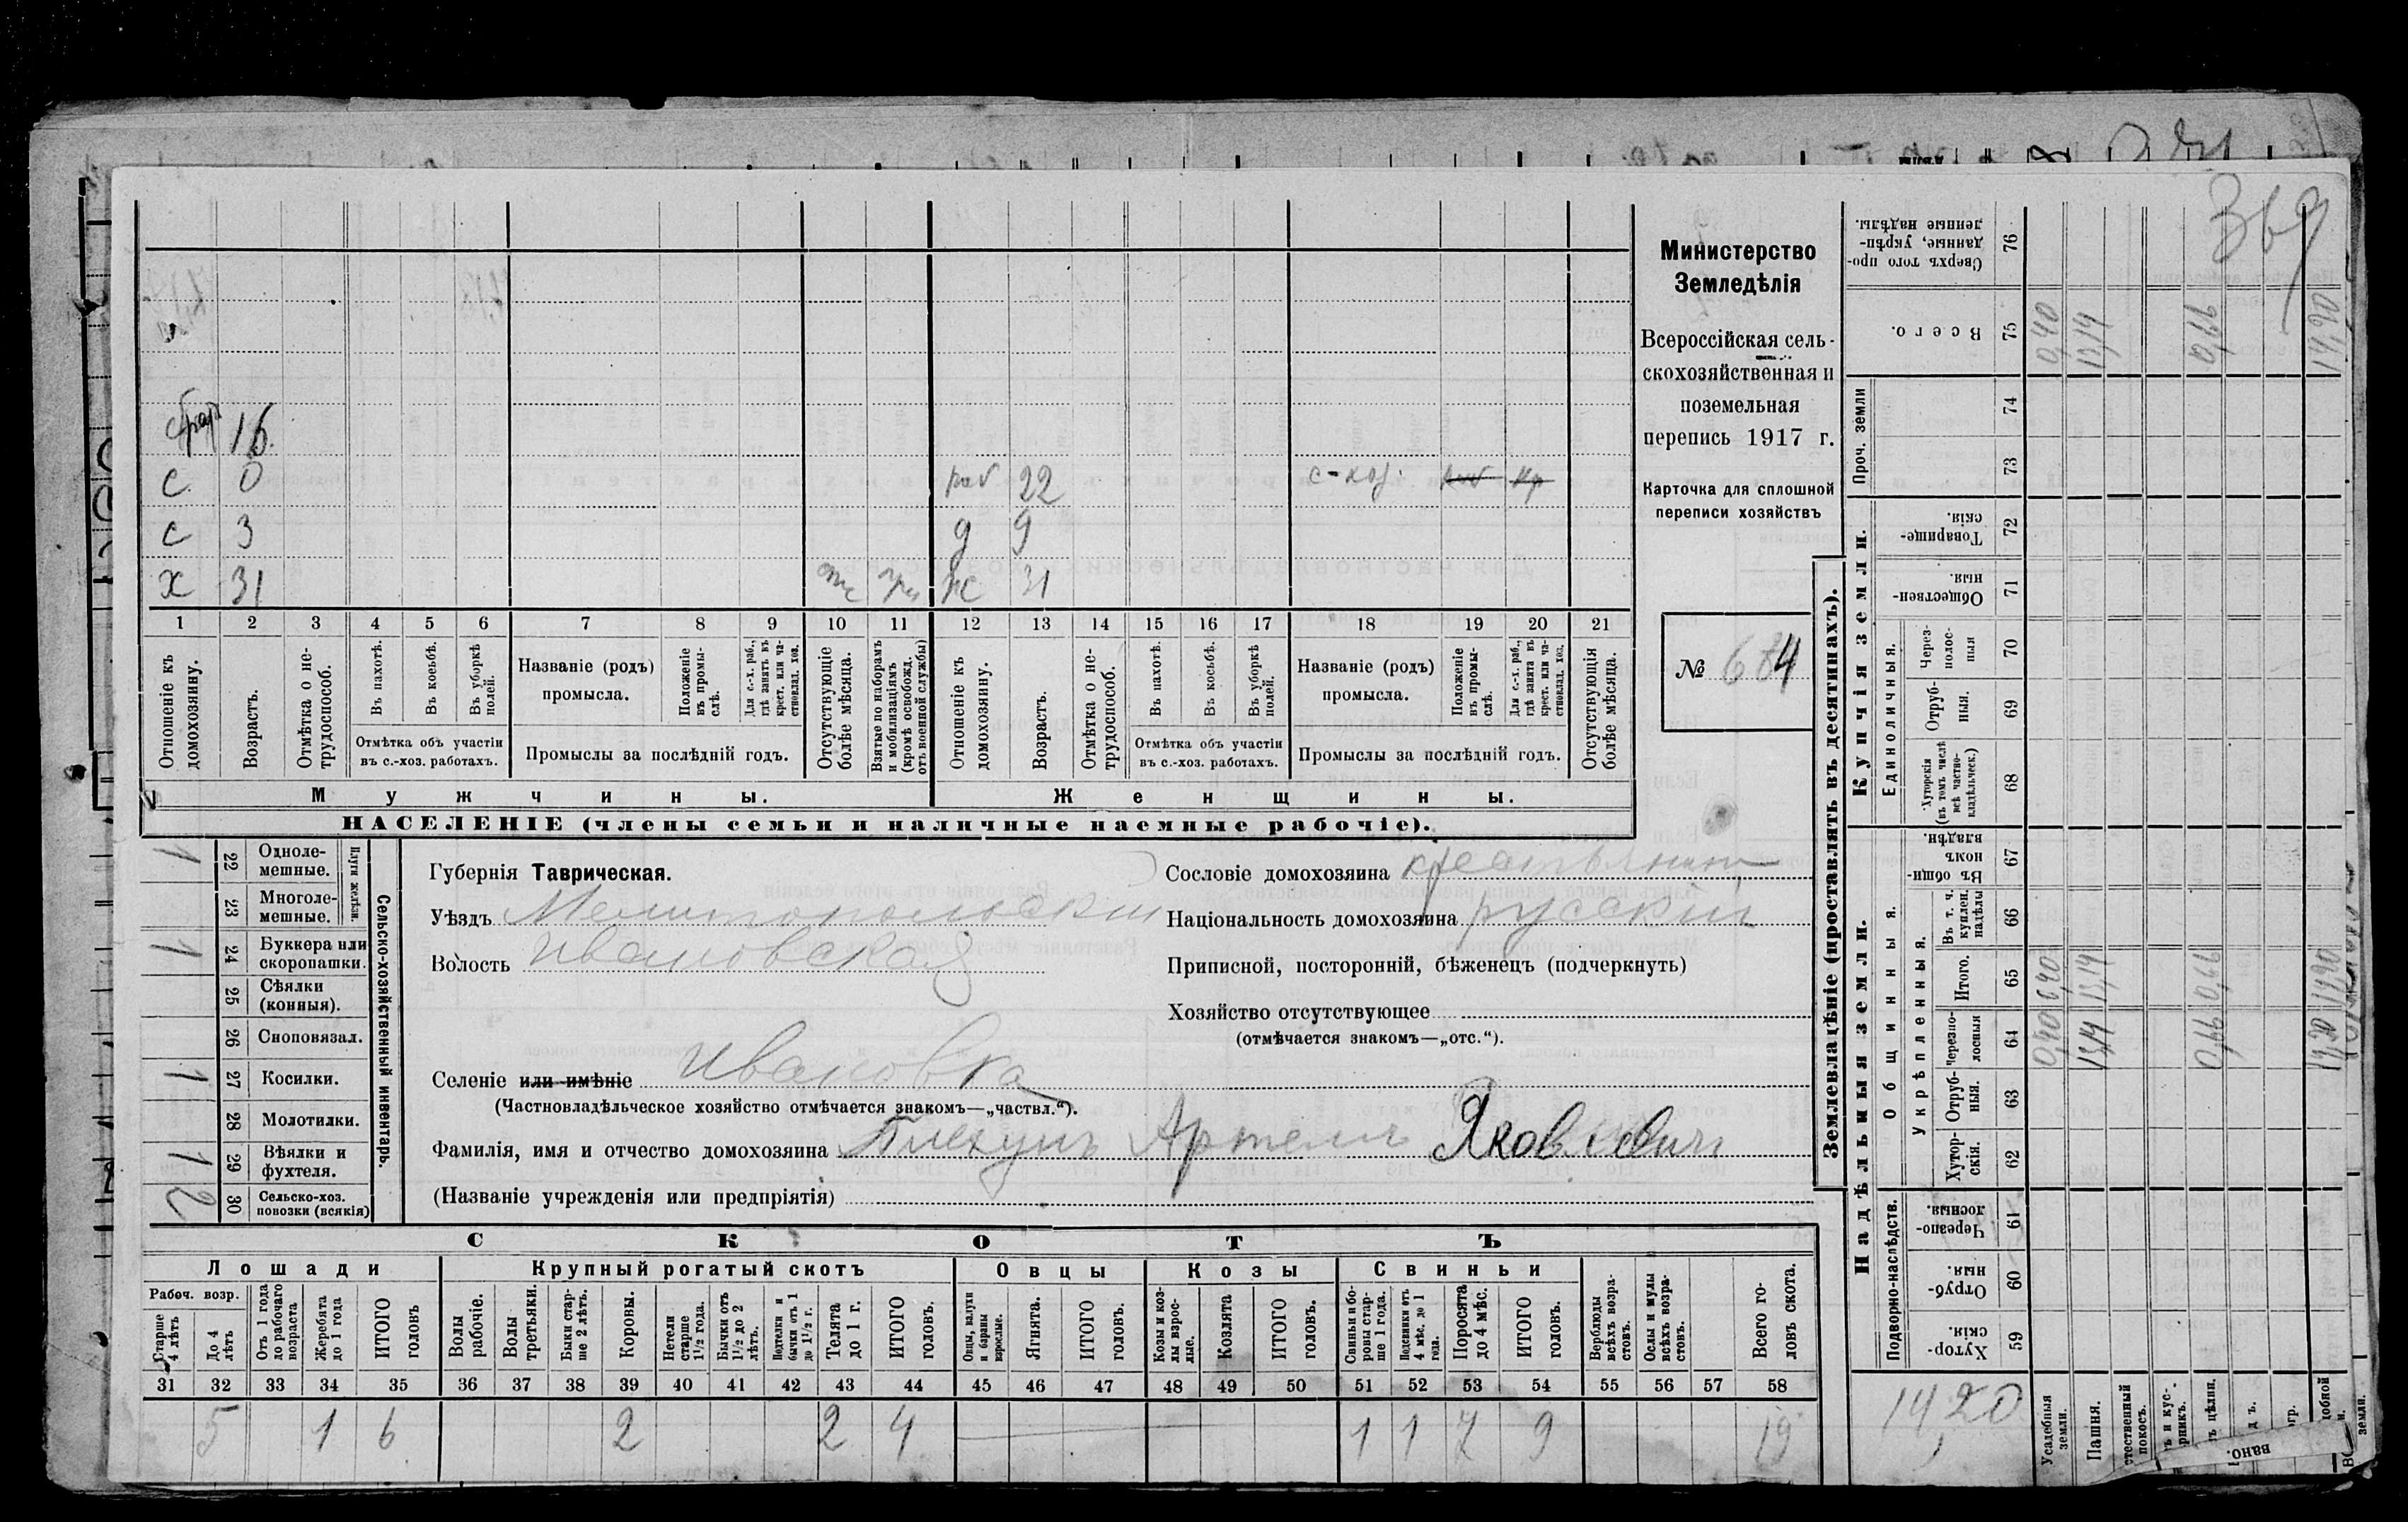 369
Министерство
Земледѣлія
Всероссійская сель-
скохозяйственная и
поземельная
перепись 1917 г.
Карточка для сплошной
переписи хозяйствъ
№ 684
16
с 0 раб 22 с-хоз.
с 3 д 9
х 31 ж 31
1 2 3 4 5 6 7 8 9 10 11 12 13 14 15 16 17 18 19 20 21
Отношеніе къ домохозяину.
Возрастъ.
Отмѣтка о не-трудоспособ.
Въ пахотѣ.
Въ косьбѣ.
Въ уборкѣ полей.
Отмѣтка объ участіи
въ с.-хоз. работахъ.
Названіе (родъ)
промысла.
Положеніе въ промы-слѣ.
Для с.-х. раб., гдѣ занятъ въ крест. или ча-стновлад. хоз.
Промыслы за послѣдній годъ.
Отсутствующіе болѣе мѣсяца.
Взятые по наборамъ и мобилизаціямъ (кромѣ освобожд. отъ военной службы)
Отношеніе къ домохозяину.
Возрастъ.
Отмѣтка о не-трудоспособ.
Въ пахотѣ.
Въ косьбѣ.
Въ уборкѣ полей.
Отмѣтка объ участіи
въ с.-хоз. работахъ.
Названіе (родъ)
промысла.
Положеніе въ промы-слѣ.
Для с.-х. раб., гдѣ занята въ крест. или ча-стновлад. хоз.
Промыслы за послѣдній годъ.
Отсутствующія болѣе мѣсяца.
Мужчины. Женщины.
НАСЕЛЕНІЕ (члены семьи и наличные наемные рабочіе).
Сельско-хозяйственный инвентарь.
Плуги желѣзн.
1 22 Одноле-мешные.
23 Многоле-мешные.
1 24 Буккера или скоропашки.
25 Сѣялки (конныя).
26 Сноповязал.
1 27 Косилки.
28 Молотилки.
1 29 Вѣялки и фухтеля.
2 30 Сельско-хоз. повозки (всякія)
Губернія Таврическая.
Уѣздъ Мелитопольскій
Волость Ивановская
Селеніе или имѣніе Ивановка
(Частновладѣльческое хозяйство отмѣчается знакомъ—„частвл.“).
Фамилія, имя и отчество домохозяина Плехунъ Артемъ Яковлевич
(Названіе учрежденія или предпріятія)
Сословіе домохозяина крестьянинъ
Національность домохозяина русскій
Приписной, посторонній, бѣженецъ (подчеркнуть)
Хозяйство отсутствующее
(отмѣчается знакомъ—„отс.“).
СКОТЪ
Лошади Крупный рогатый скотъ Овцы Козы Свиньи
Рабоч. возр.
Старше 4 лѣтъ
До 4 лѣтъ
Отъ 1 года до рабочаго возраста
Жеребята до 1 года
ИТОГО головъ
Волы рабочіе.
Волы третьяки.
Быки стар-ше 2 лѣтъ.
Коровы.
Нетели старше 1½ года.
Бычки отъ 1½ до 2 лѣтъ.
Подтелки и бычки отъ 1 до 1½ г.
Телята до 1 г.
ИТОГО головъ.
Овцы, валухи и бараны взрослые.
Ягнята.
ИТОГО головъ.
Козы и коз-лы взрос-лые.
Козлята
ИТОГО головъ.
Свиньи и бо-ровы стар-ше 1 года.
Подсвинки отъ 4 мѣс. до 1 года.
Поросята до 4 мѣс.
ИТОГО головъ.
Верблюды всѣхъ возра-стовъ.
Ослы и мулы всѣхъ возра-стовъ.
Всего го-ловъ скота.
31 32 33 34 35 36 37 38 39 40 41 42 43 44 45 46 47 48 49 50 51 52 53 54 55 56 57 58
5 1 6 2 2 4 1 1 7 9 19
Землевладѣніе (проставлять въ десятинахъ).
Надѣльныя земли. Купчія земли. Проч. земли
Подворно-наслѣдств.
Общинныя.
Укрѣпленныя.
Единоличныя.
Хутор-скія 59
Отруб-ныя. 60
Черезпо-лосныя. 61
Хутор-скія. 62
Отруб-ныя. 63
Черезпо-лосныя 64
Итого. 65
Въ т. ч. куплен. надѣлы 66
Въ общин-номъ владѣн. 67
Хуторскія (въ томъ числѣ всѣ частно-владѣльческ.) 68
Отруб-ныя. 69
Через-полос-ныя 70
Обществен-ныя. 71
Товарище-скія. 72
73
74
Всего. 75
Сверхъ того про-данные, укрѣп-ленные надѣлы. 76
14,20
Усадебныя земли. 0,40 0,40 0,40
Пашня. 13,14 13,14 13,14
0,66 0,66 0,66
14,20 14,20 14,20
вано.